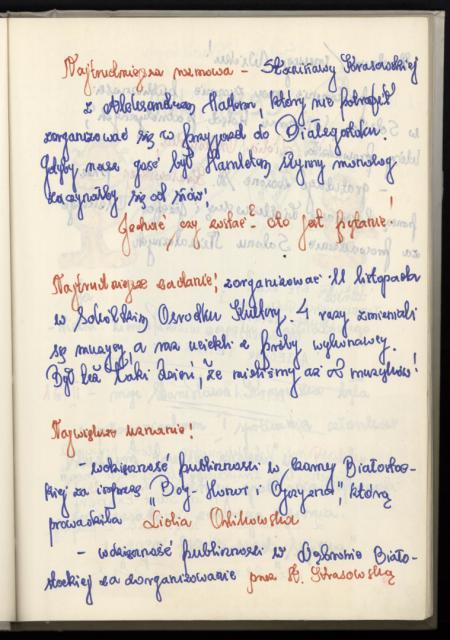 Najtrudniejsza rozmowa - Stanisławy Krasowskiej
z Aleksandrem Hallem, który nie potrafił
zorganizować się w przyjazd do Białegostoku.
Gdyby nasz gość był Hamletem, słynny monolog
zaczynałby się od słów:
Jechać czy zostać - oto jest pytanie!
Najtrudniejsze zadanie: zorganizować 11 listopada
w Sokólskim Ośrodku Kultury. 4 razy zmieniali
się muzycy, a raz uciekli z próby, wykonawcy.
Był też taki dzień, że mieliśmy aż 8 muzyków!
Największe uznanie!
- wdzięczność publiczności w Czarnej Białostoc-
kiej za imprezę "Bóg - Honor i Ojczyzna" którą
prowadziła Lidia Orlikowska
- wdzięczność publiczności w Dąbrowie Biało-
stockiej za zorganizowanie przez St. Krasowską